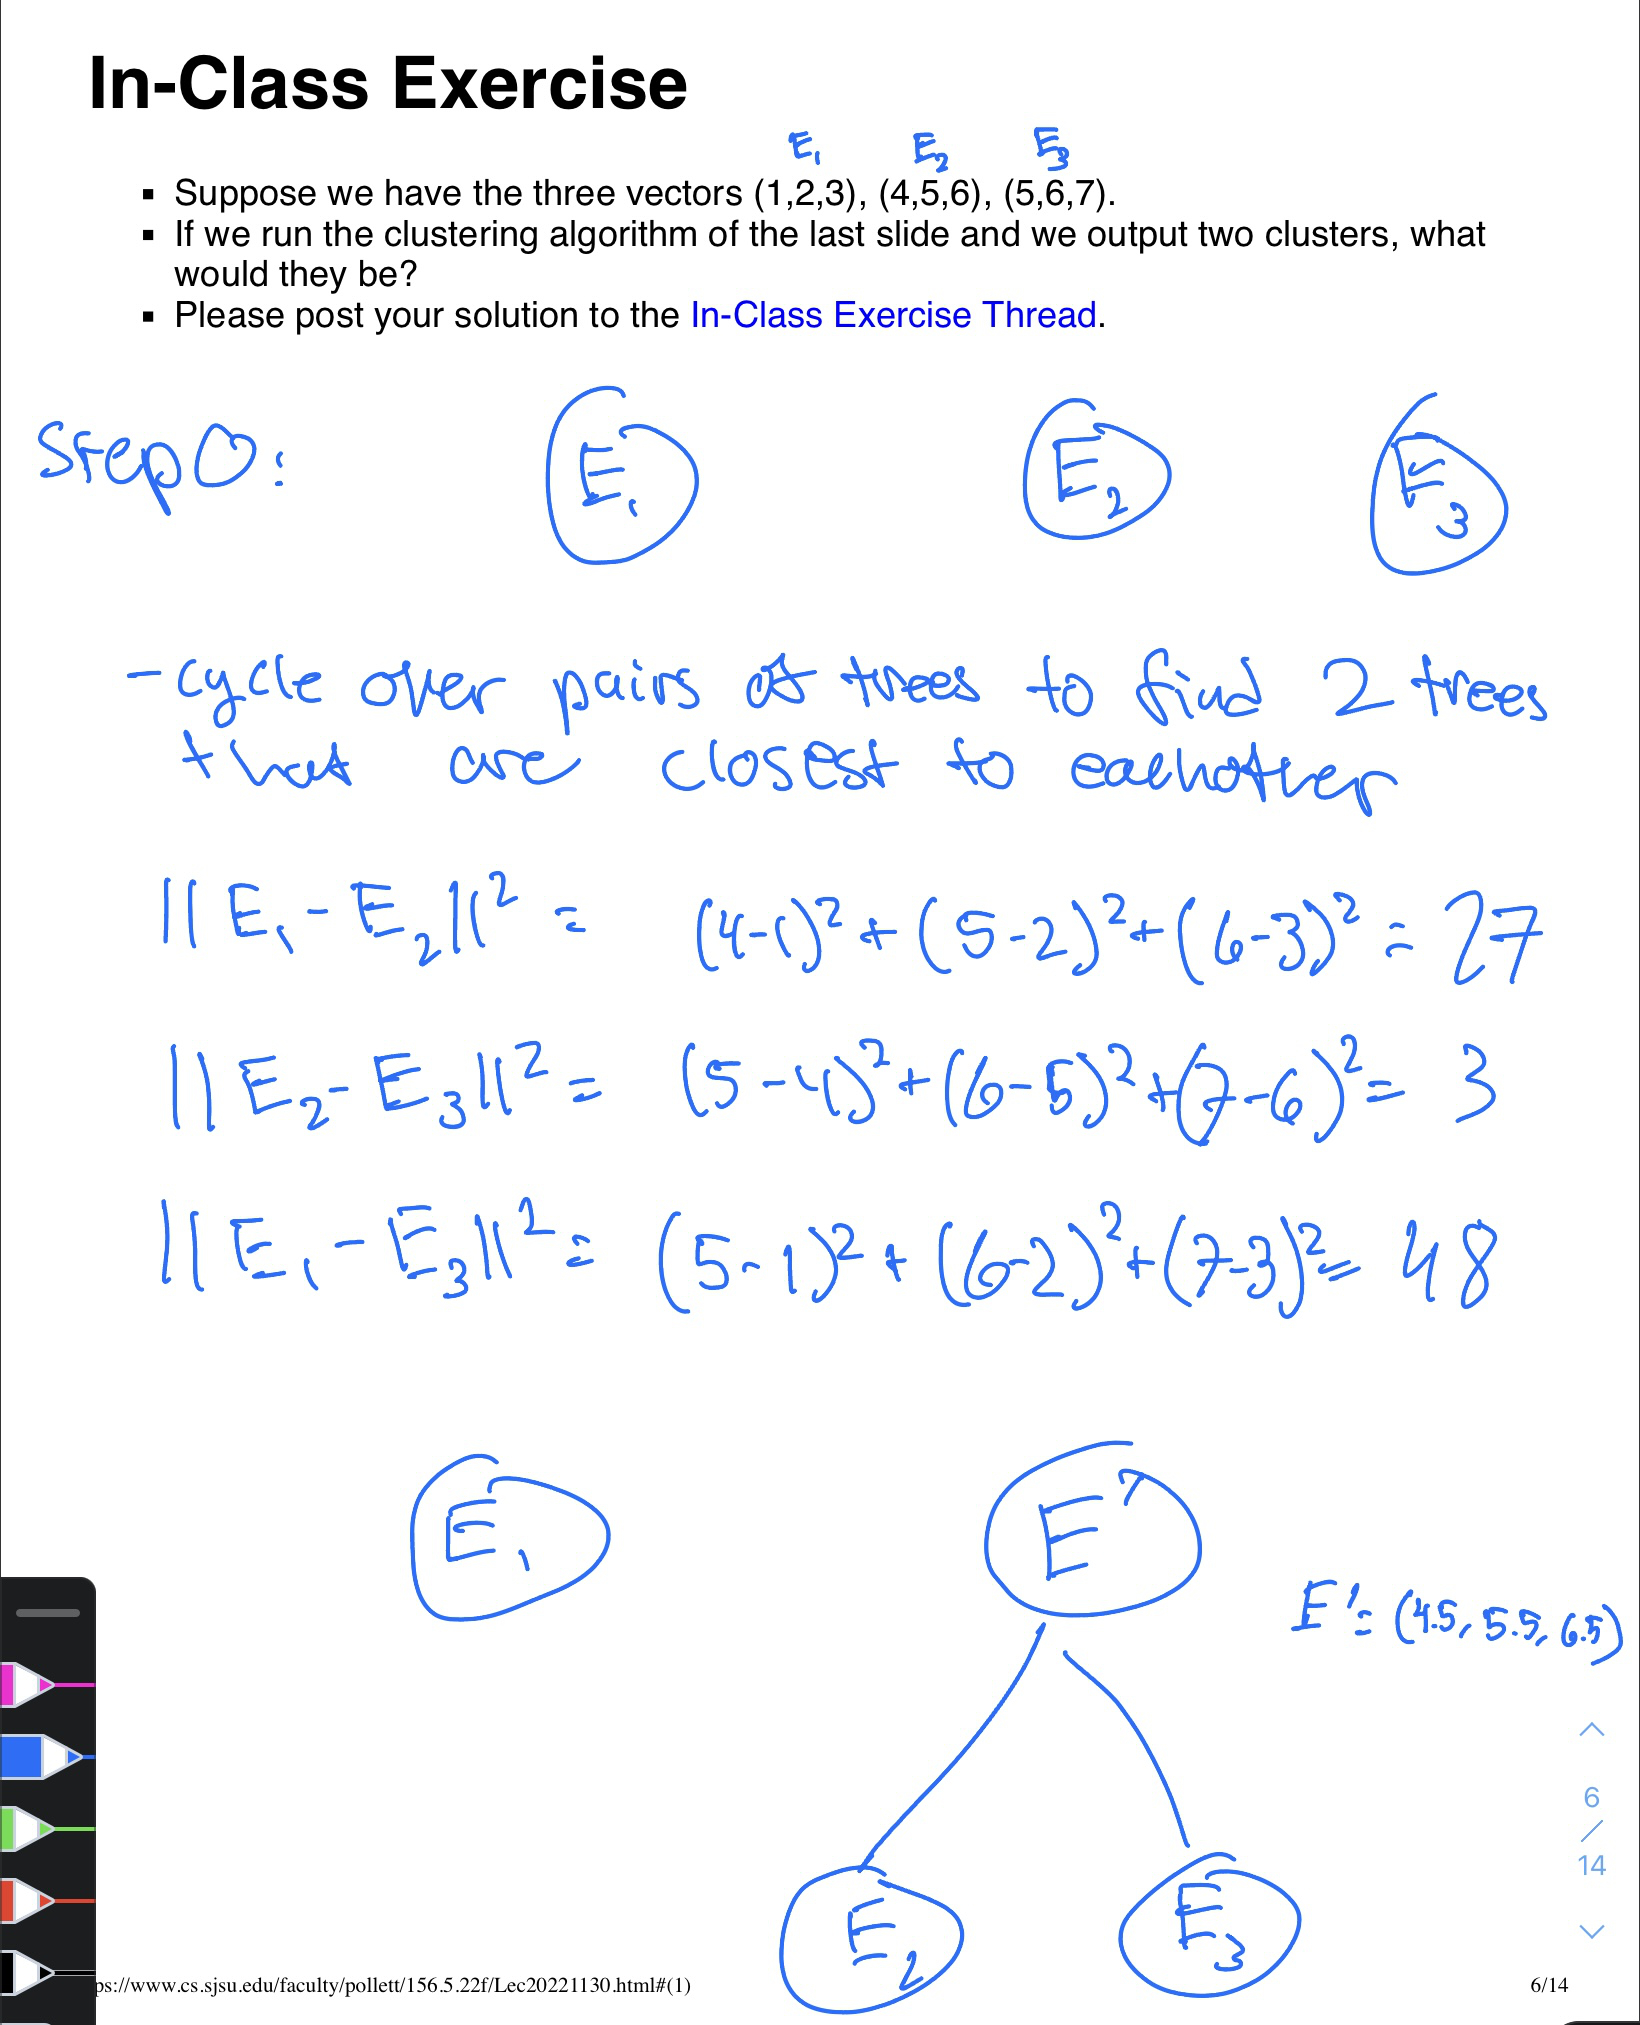 In-Class Exercise
E₁ E₂ E₃
▪ Suppose we have the three vectors (1,2,3), (4,5,6), (5,6,7).
▪ If we run the clustering algorithm of the last slide and we output two clusters, what
would they be?
▪ Please post your solution to the In-Class Exercise Thread.
Step 0: E₁ E₂ E₃
- cycle over pairs of trees to find 2 trees
that are closest to eachother
||E₁ - E₂||² = (4-1)² + (5-2)² + (6-3)² = 27
||E₂ - E₃||² = (5-4)² + (6-5)² + (7-6)² = 3
||E₁ - E₃||² = (5-1)² + (6-2)² + (7-3)² = 48
E₁ E'
E' = (4.5, 5.5, 6.5)
6
/
14
E₂ E₃
ps://www.cs.sjsu.edu/faculty/pollett/156.5.22f/Lec20221130.html#(1) 6/14